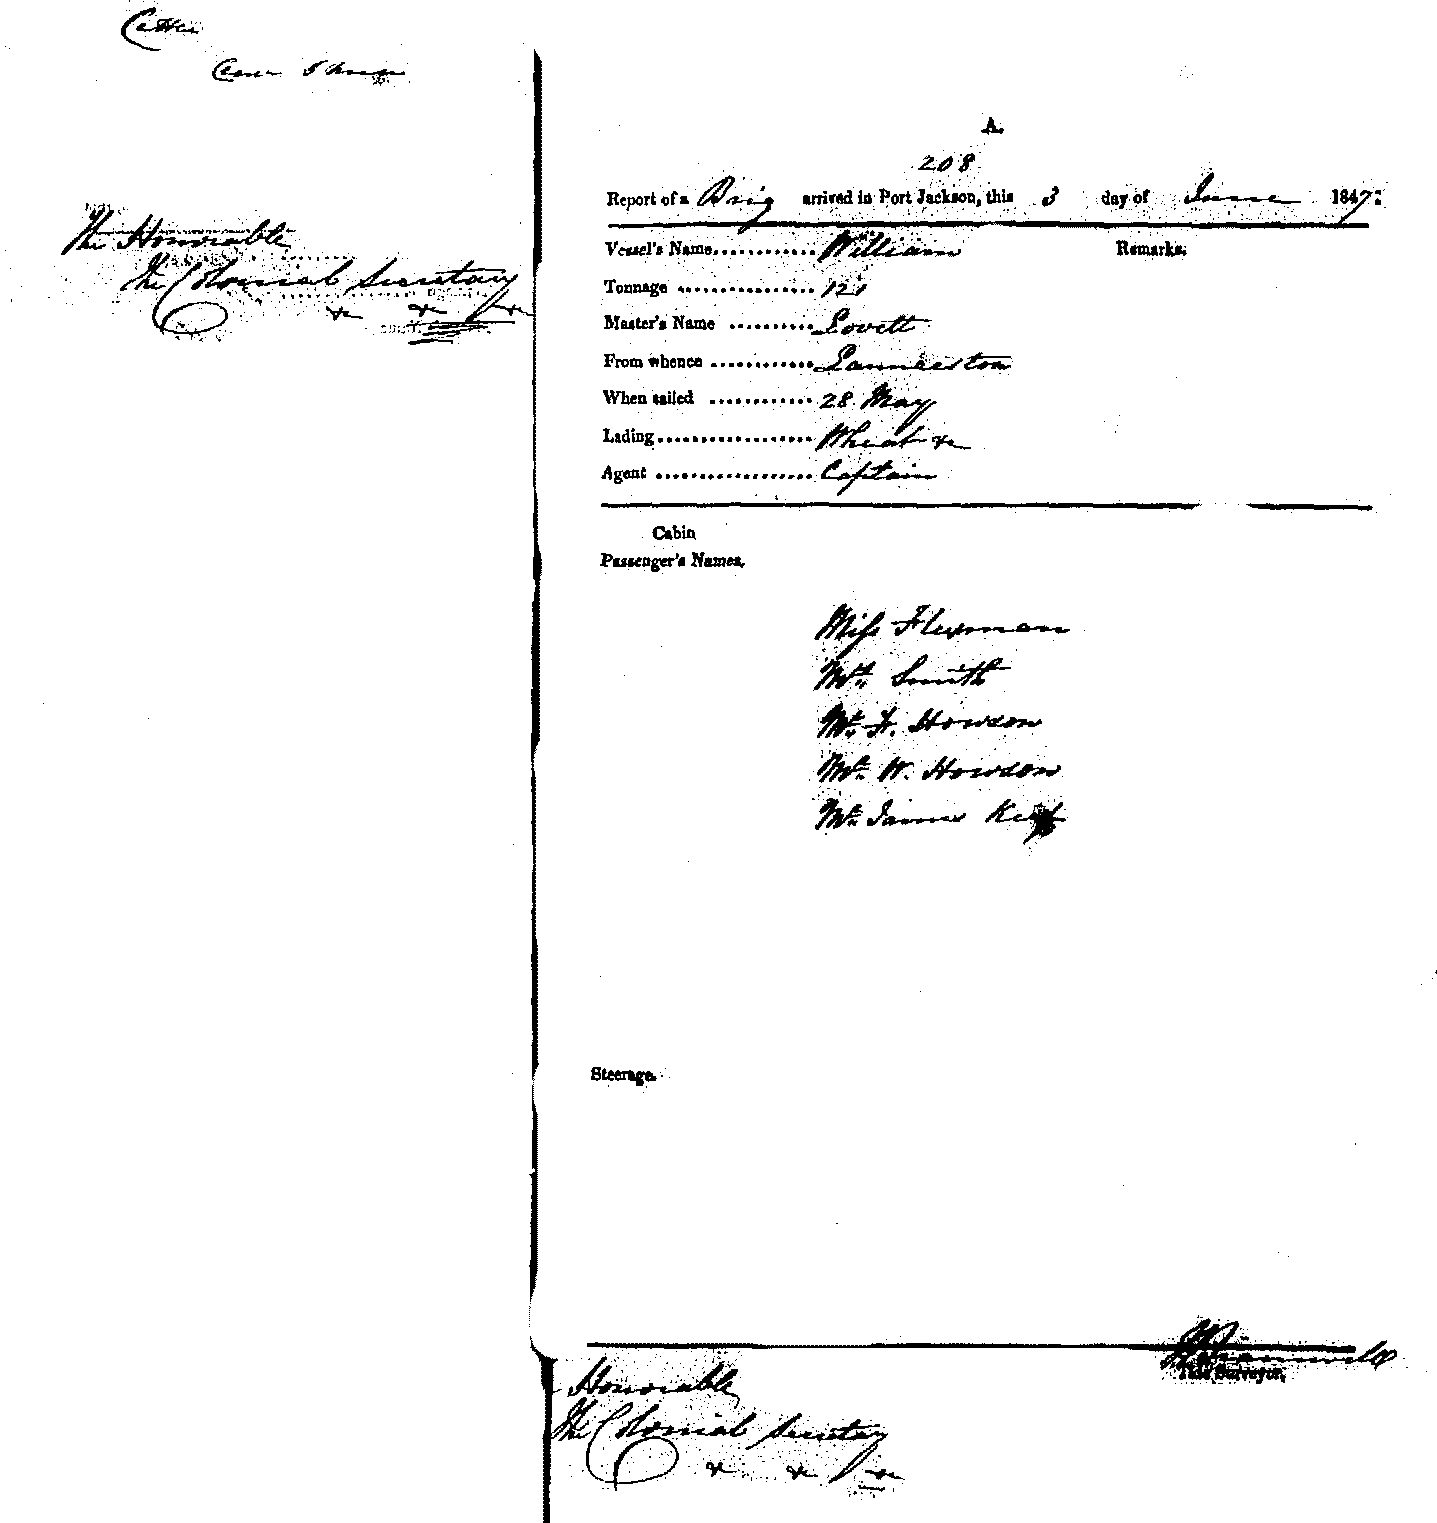 The Honorable
The Colonial Secretary
&c &c &c
A.
208
Report of a Brig arrived in Port Jackson, this 3 day of June 1847:
Vessel's Name............ William Remarks.
Tonnage ............... 121
Master's Name .......... Lovett
From whence ............ Launceston
When sailed ............ 28 May
Lading.................. Wheat &c
Agent .................. Captain
Cabin
Passenger's Names.
Miss Flexman
Mr. Smith
Mr. F. Howson
Mr. W. Howson
Mr. James
Steerage.
Tide Surveyor.
Honorable
The Colonial Secretary
&c &c &c